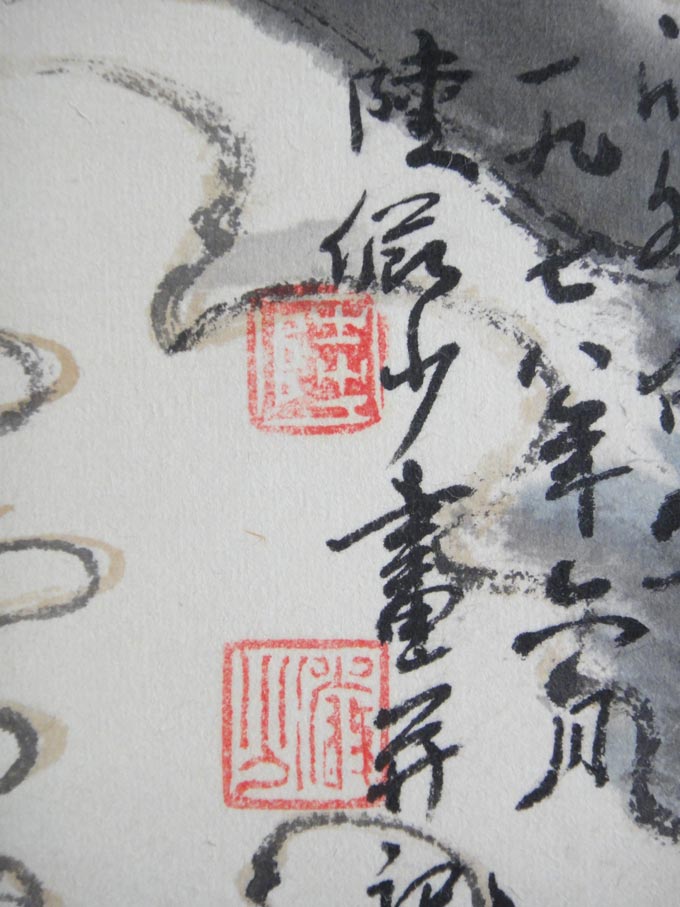 一九七八年六月
陸儼少畫并記
陸
儼少